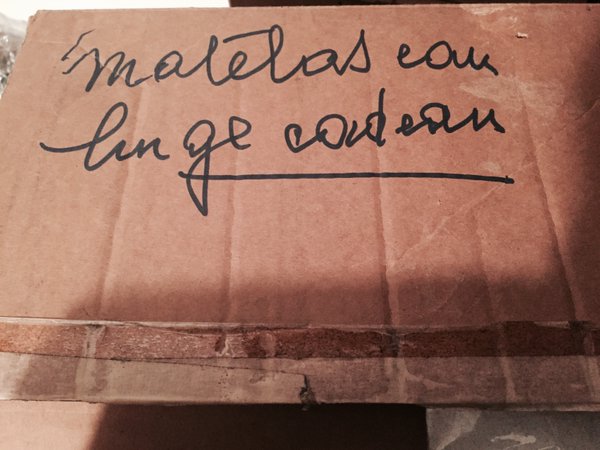 matelas eau
linge cadeau